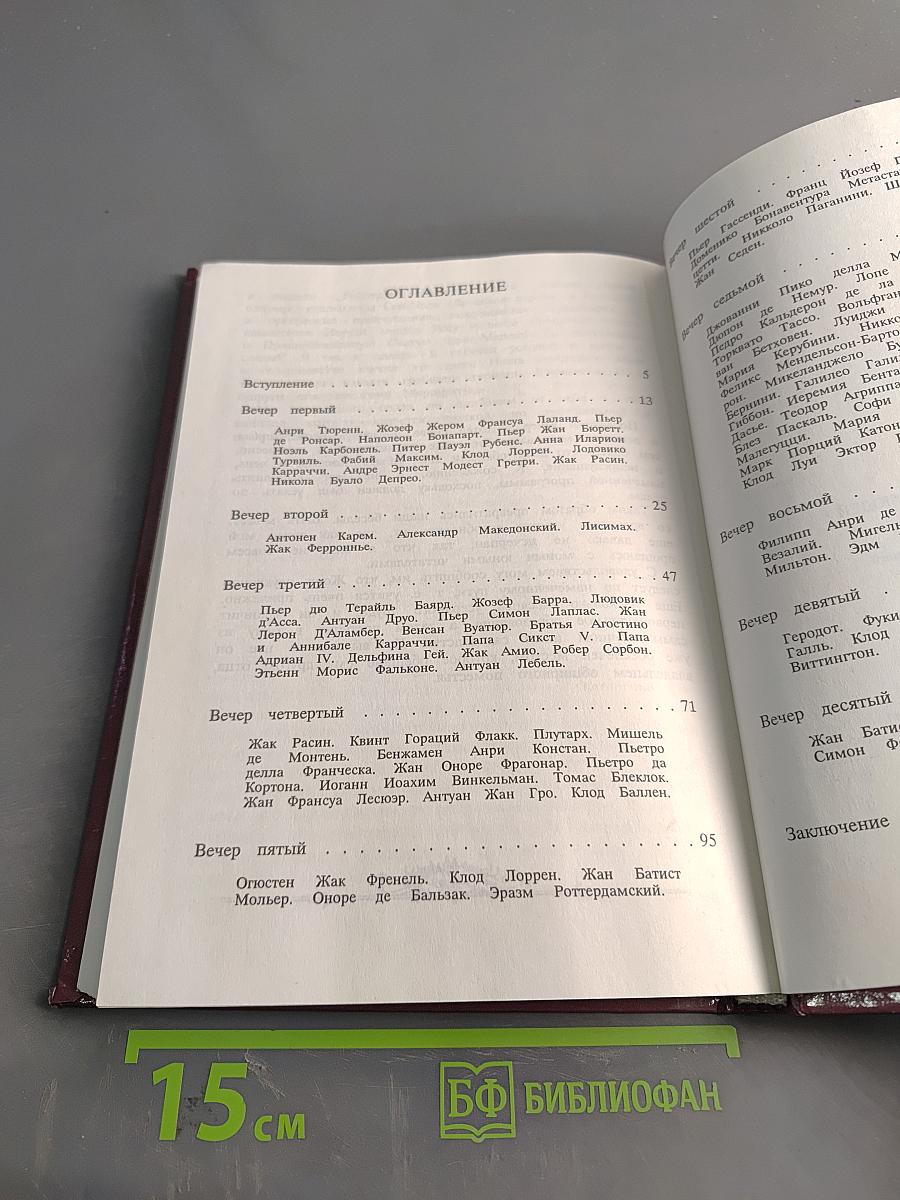 ОГЛАВЛЕНИЕ
Вступление . . . . . . . . . . . . . . . . . . . . 5
Вечер первый . . . . . . . . . . . . . . . . . . . . 13
Анри Тюренн. Жозеф Жером Франсуа Лаланд. Пьер
де Ронсар. Наполеон Бонапарт. Пьер Жан Бюретт.
Ноэль Карбонель. Питер Пауэл Рубенс. Анна Иларион
Турвиль. Фабий Максим. Клод Лоррен. Лодовико
Карраччи. Андре Эрнест Модест Гретри. Жак Расин.
Никола Буало Депрео.
Вечер второй . . . . . . . . . . . . . . . . . . . . 25
Антонен Карем. Александр Македонский. Лисимах.
Жак Ферроннье.
Вечер третий . . . . . . . . . . . . . . . . . . . . 47
Пьер дю Терайль Баярд. Жозеф Барра. Людовик
д'Асса. Антуан Друо. Пьер Симон Лаплас. Жан
Лерон Д'Аламбер. Венсан Вуатюр. Братья Агостино
и Аннибале Карраччи. Папа Сикст V. Папа
Адриан IV. Дельфина Гей. Жак Амио. Робер Сорбон.
Этьенн Морис Фальконе. Антуан Лебель.
Вечер четвертый . . . . . . . . . . . . . . . . . . . . 71
Жак Расин. Квинт Гораций Флакк. Плутарх. Мишель
де Монтень. Бенжамен Анри Констан. Пьетро
делла Франческа. Жан Оноре Фрагонар. Пьетро да
Кортона. Иоганн Иоахим Винкельман. Томас Блеклок.
Жан Франсуа Лесюэр. Антуан Жан Гро. Клод Баллен.
Вечер пятый . . . . . . . . . . . . . . . . . . . . 95
Огюстен Жак Френель. Клод Лоррен. Жан Батист
Мольер. Оноре де Бальзак. Эразм Роттердамский.
Вечер шестой . . . . . . . .
Пьер Гассенди. Франц Йозеф
Доменико Бонавентура Метаста
цетти. Никколо Паганини. Ш
Жан Седен.
Вечер седьмой . . . . . . . .
Джованни Пико делла М
Дюпон де Немур. Лопе
Педро Кальдерон де ла
Торквато Тассо. Вольфган
ван Бетховен. Луиджи
Мария Керубини. Никко
Феликс Мендельсон-Барто
рон. Микеланджело Бу
Бернини. Галилео Галил
Гиббон. Иеремия Бента
Дасье. Теодор Агриппа
Блез Паскаль. Софи
Малегуцци. Мария
Марк Порций Катон
Клод Луи Эктор
Вечер восьмой . . .
Филипп Анри де
Везалий. Мигель
Мильтон. Эдм
Вечер девятый .
Геродот. Фуки
Галль. Клод
Виттингтон.
Вечер десятый
Жан Батис
Симон Ф
Заключение
15 см
БФ БИБЛИОФАН